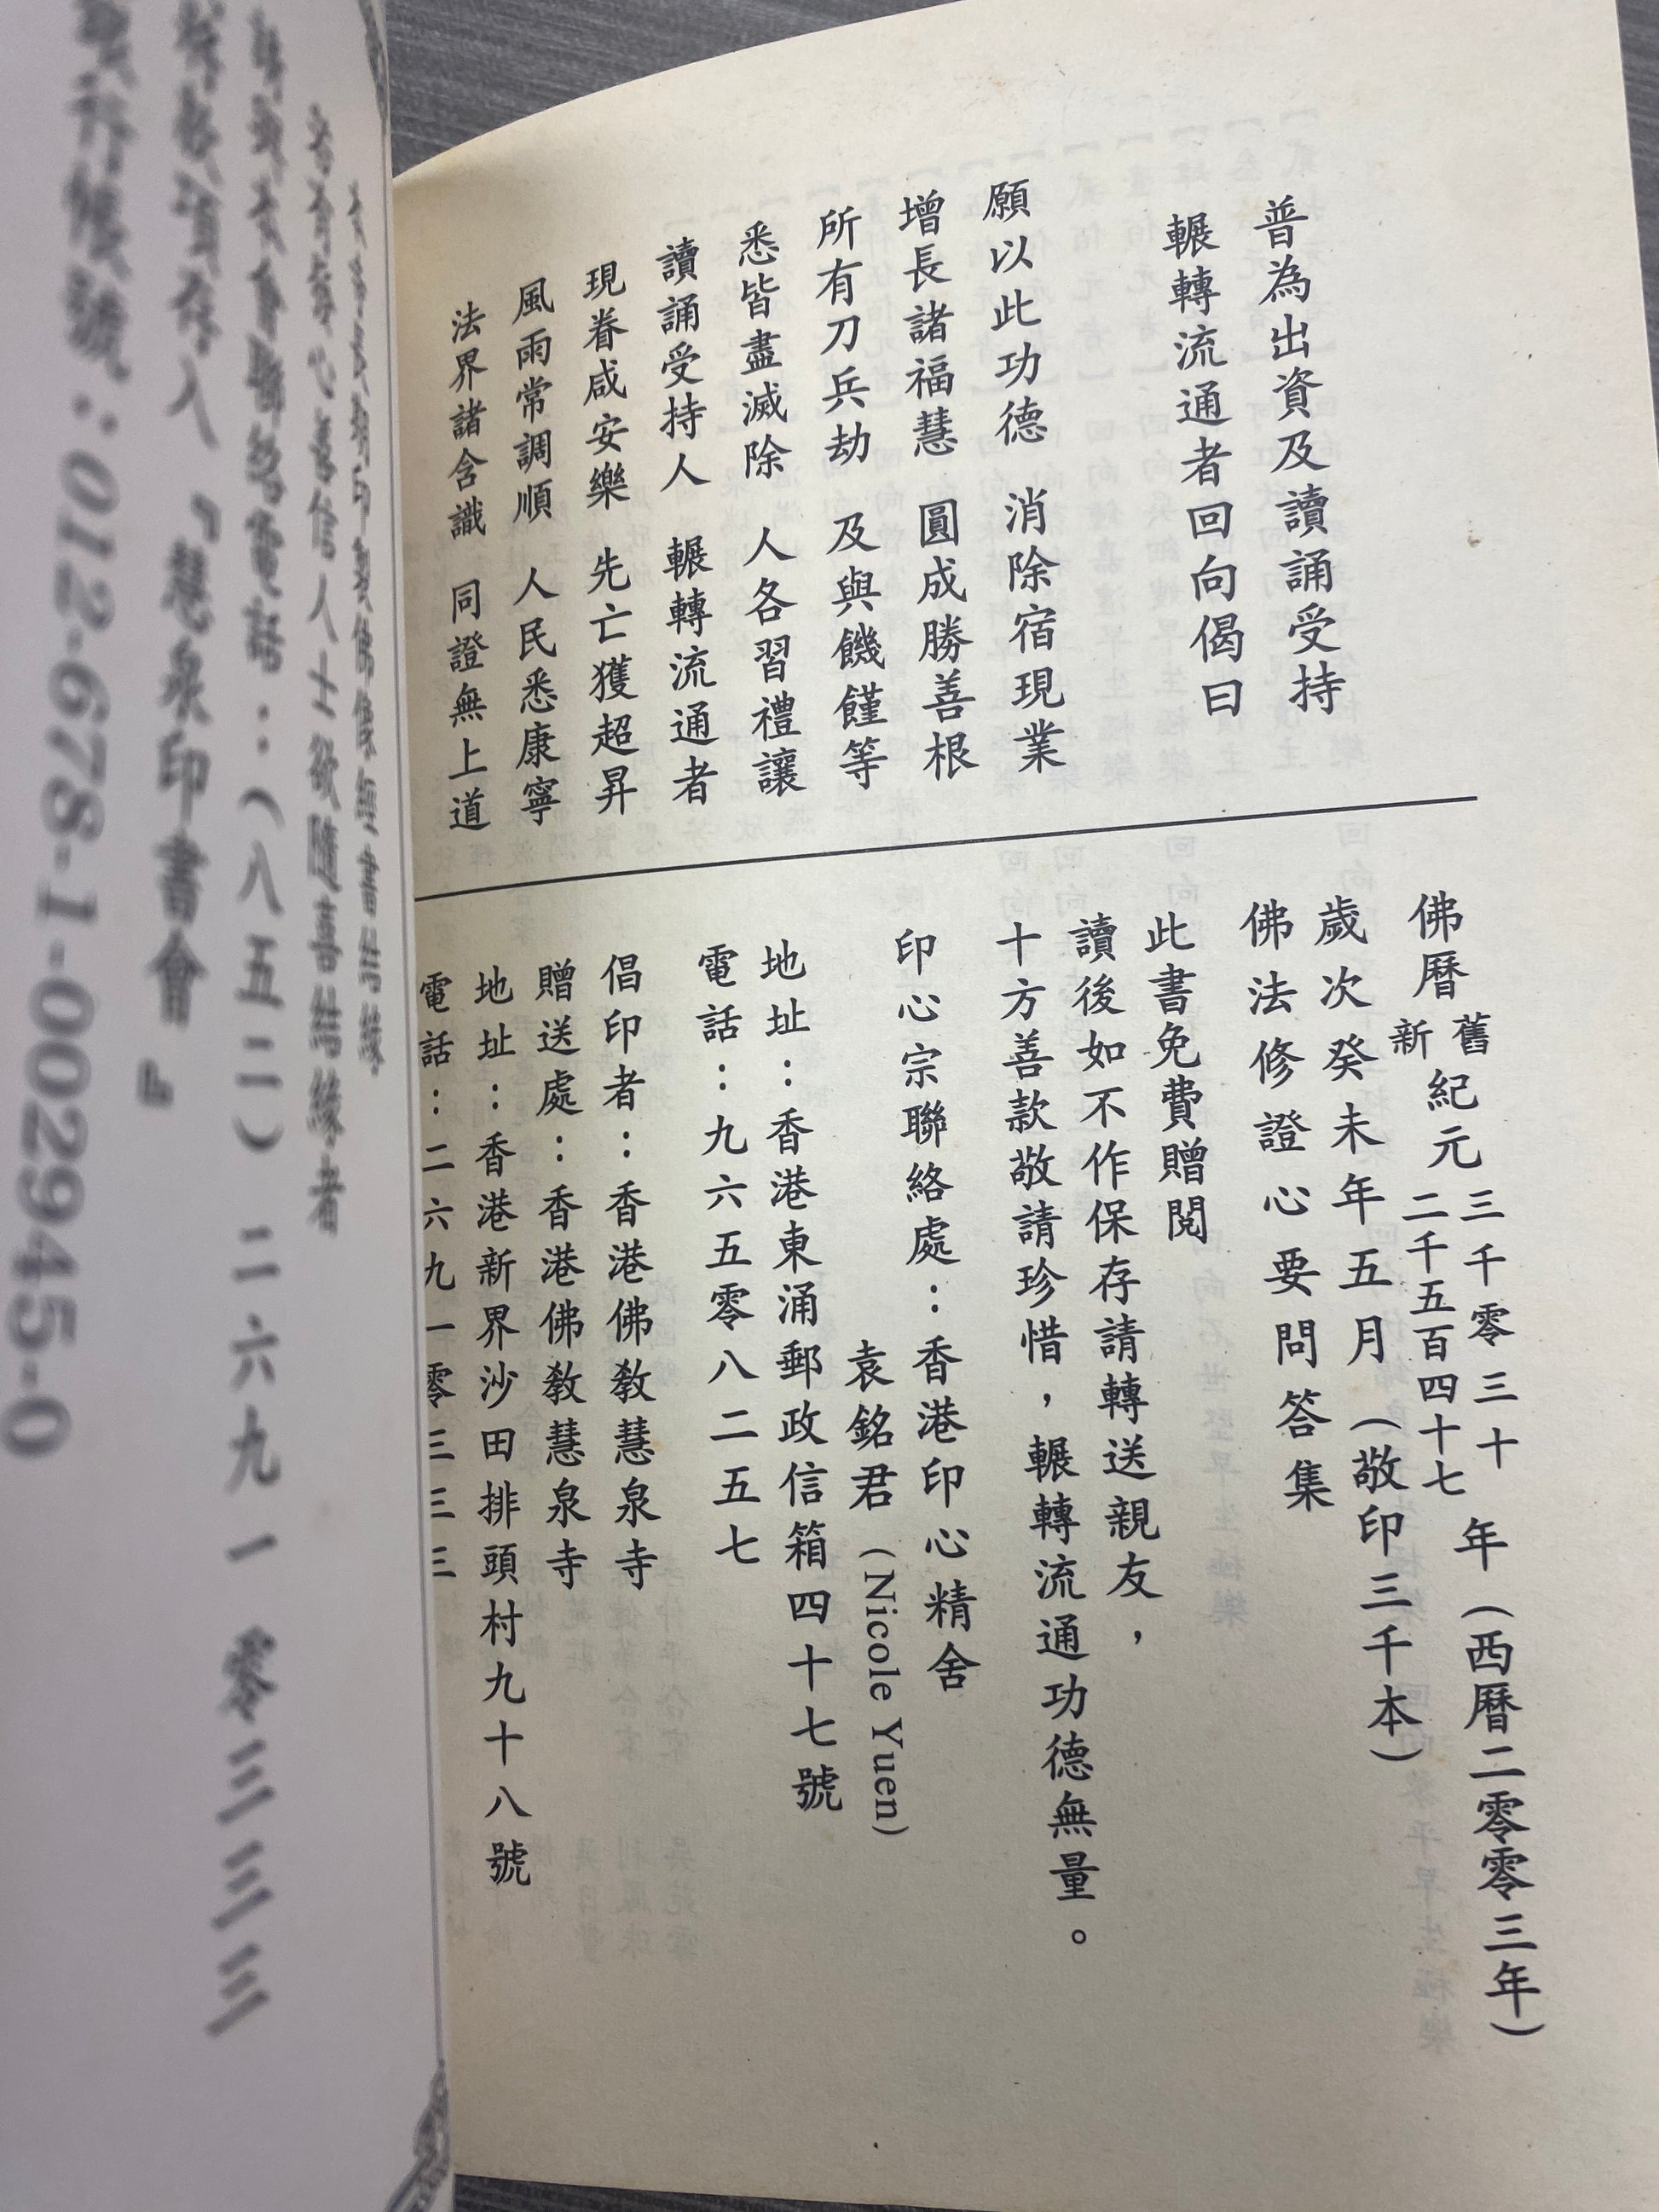 普為出資及讀誦受持
輾轉流通者回向偈曰
願以此功德　消除宿現業
增長諸福慧　圓成勝善根
所有刀兵劫　及與饑饉等
悉皆盡滅除　人各習禮讓
讀誦受持人　輾轉流通者
現眷咸安樂　先亡獲超昇
風雨常調順　人民悉康寧
法界諸含識　同證無上道
佛曆舊紀元三千零三十年（西曆二零零三年）
新　二千五百四十七
歲次癸未年五月（敬印三千本）
佛法修證心要問答集
此書免費贈閱
讀後如不作保存請轉送親友，
十方善款敬請珍惜，輾轉流通功德無量。
印心宗聯絡處：香港印心精舍
袁銘君（Nicole Yuen）
地址：香港東涌郵政信箱四十七號
電話：九六五零八二五七
倡印者：香港佛教慧泉寺
贈送處：香港佛教慧泉寺
地址：香港新界沙田排頭村九十八號
電話：二六九一零三三三
印製佛像經書結緣
善信人士欲隨喜結緣者
聯絡電話：（八五二）二六九一零三三三
存入『慧泉印書會』
號：012-678-1-002945-0